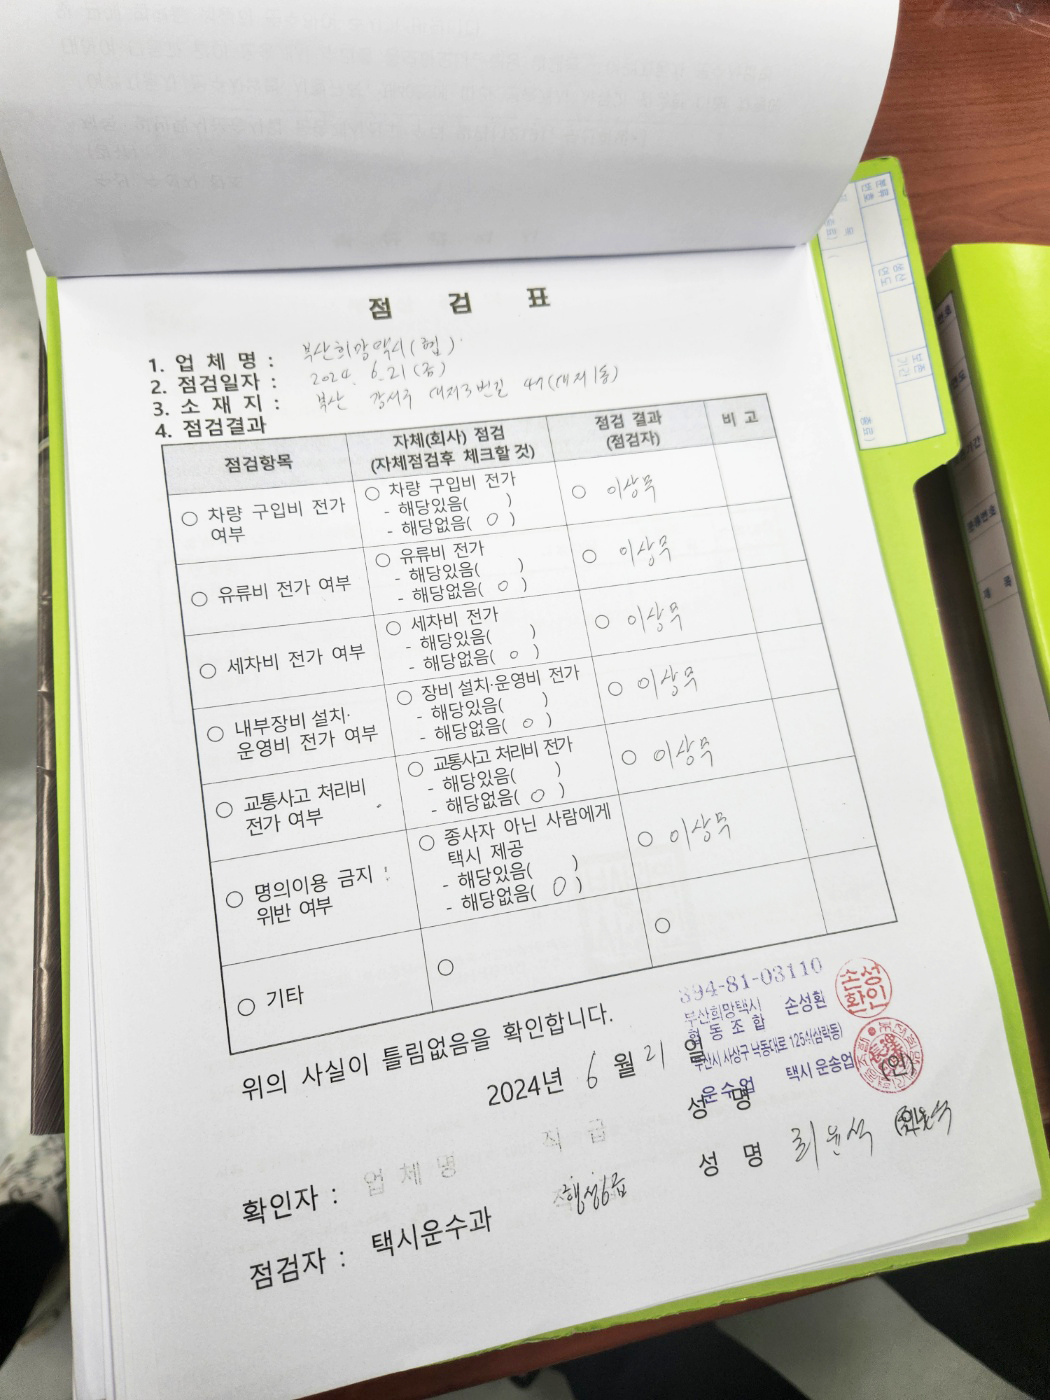 점 검 표
1. 업 체 명 : 부산희망택시(협)
2. 점검일자 : 2024. 6. 21(금)
3. 소 재 지 : 부산 강서구 대저3번길 47(대저1동)
4. 점검결과
점검항목 자체(회사) 점검 (자체점검후 체크할 것) 점검 결과 (점검자) 비 고
○ 차량 구입비 전가 여부
○ 차량 구입비 전가
- 해당있음( )
- 해당없음( ○ )
○ 이상무
○ 유류비 전가 여부
○ 유류비 전가
- 해당있음( )
- 해당없음( ○ )
○ 이상무
○ 세차비 전가 여부
○ 세차비 전가
- 해당있음( )
- 해당없음( ○ )
○ 이상무
○ 내부장비 설치·
운영비 전가 여부
○ 장비 설치·운영비 전가
- 해당있음( )
- 해당없음( ○ )
○ 이상무
○ 교통사고 처리비
전가 여부
○ 교통사고 처리비 전가
- 해당있음( )
- 해당없음( ○ )
○ 이상무
○ 명의이용 금지
위반 여부
○ 종사자 아닌 사람에게
택시 제공
- 해당있음( )
- 해당없음( ○ )
○ 이상무
○ 기타
○
○
위의 사실이 틀림없음을 확인합니다.
2024년 6 월 21 일
394-81-03110
부산희망택시 손성환
협 동 조 합
부산시 사상구 낙동대로 1254(삼락동)
운수업 택시 운송업
손성환인
확인자 : 업 체 명 직 급 성 명 (인)
점검자 : 택시운수과 행정6급 성 명 최윤석